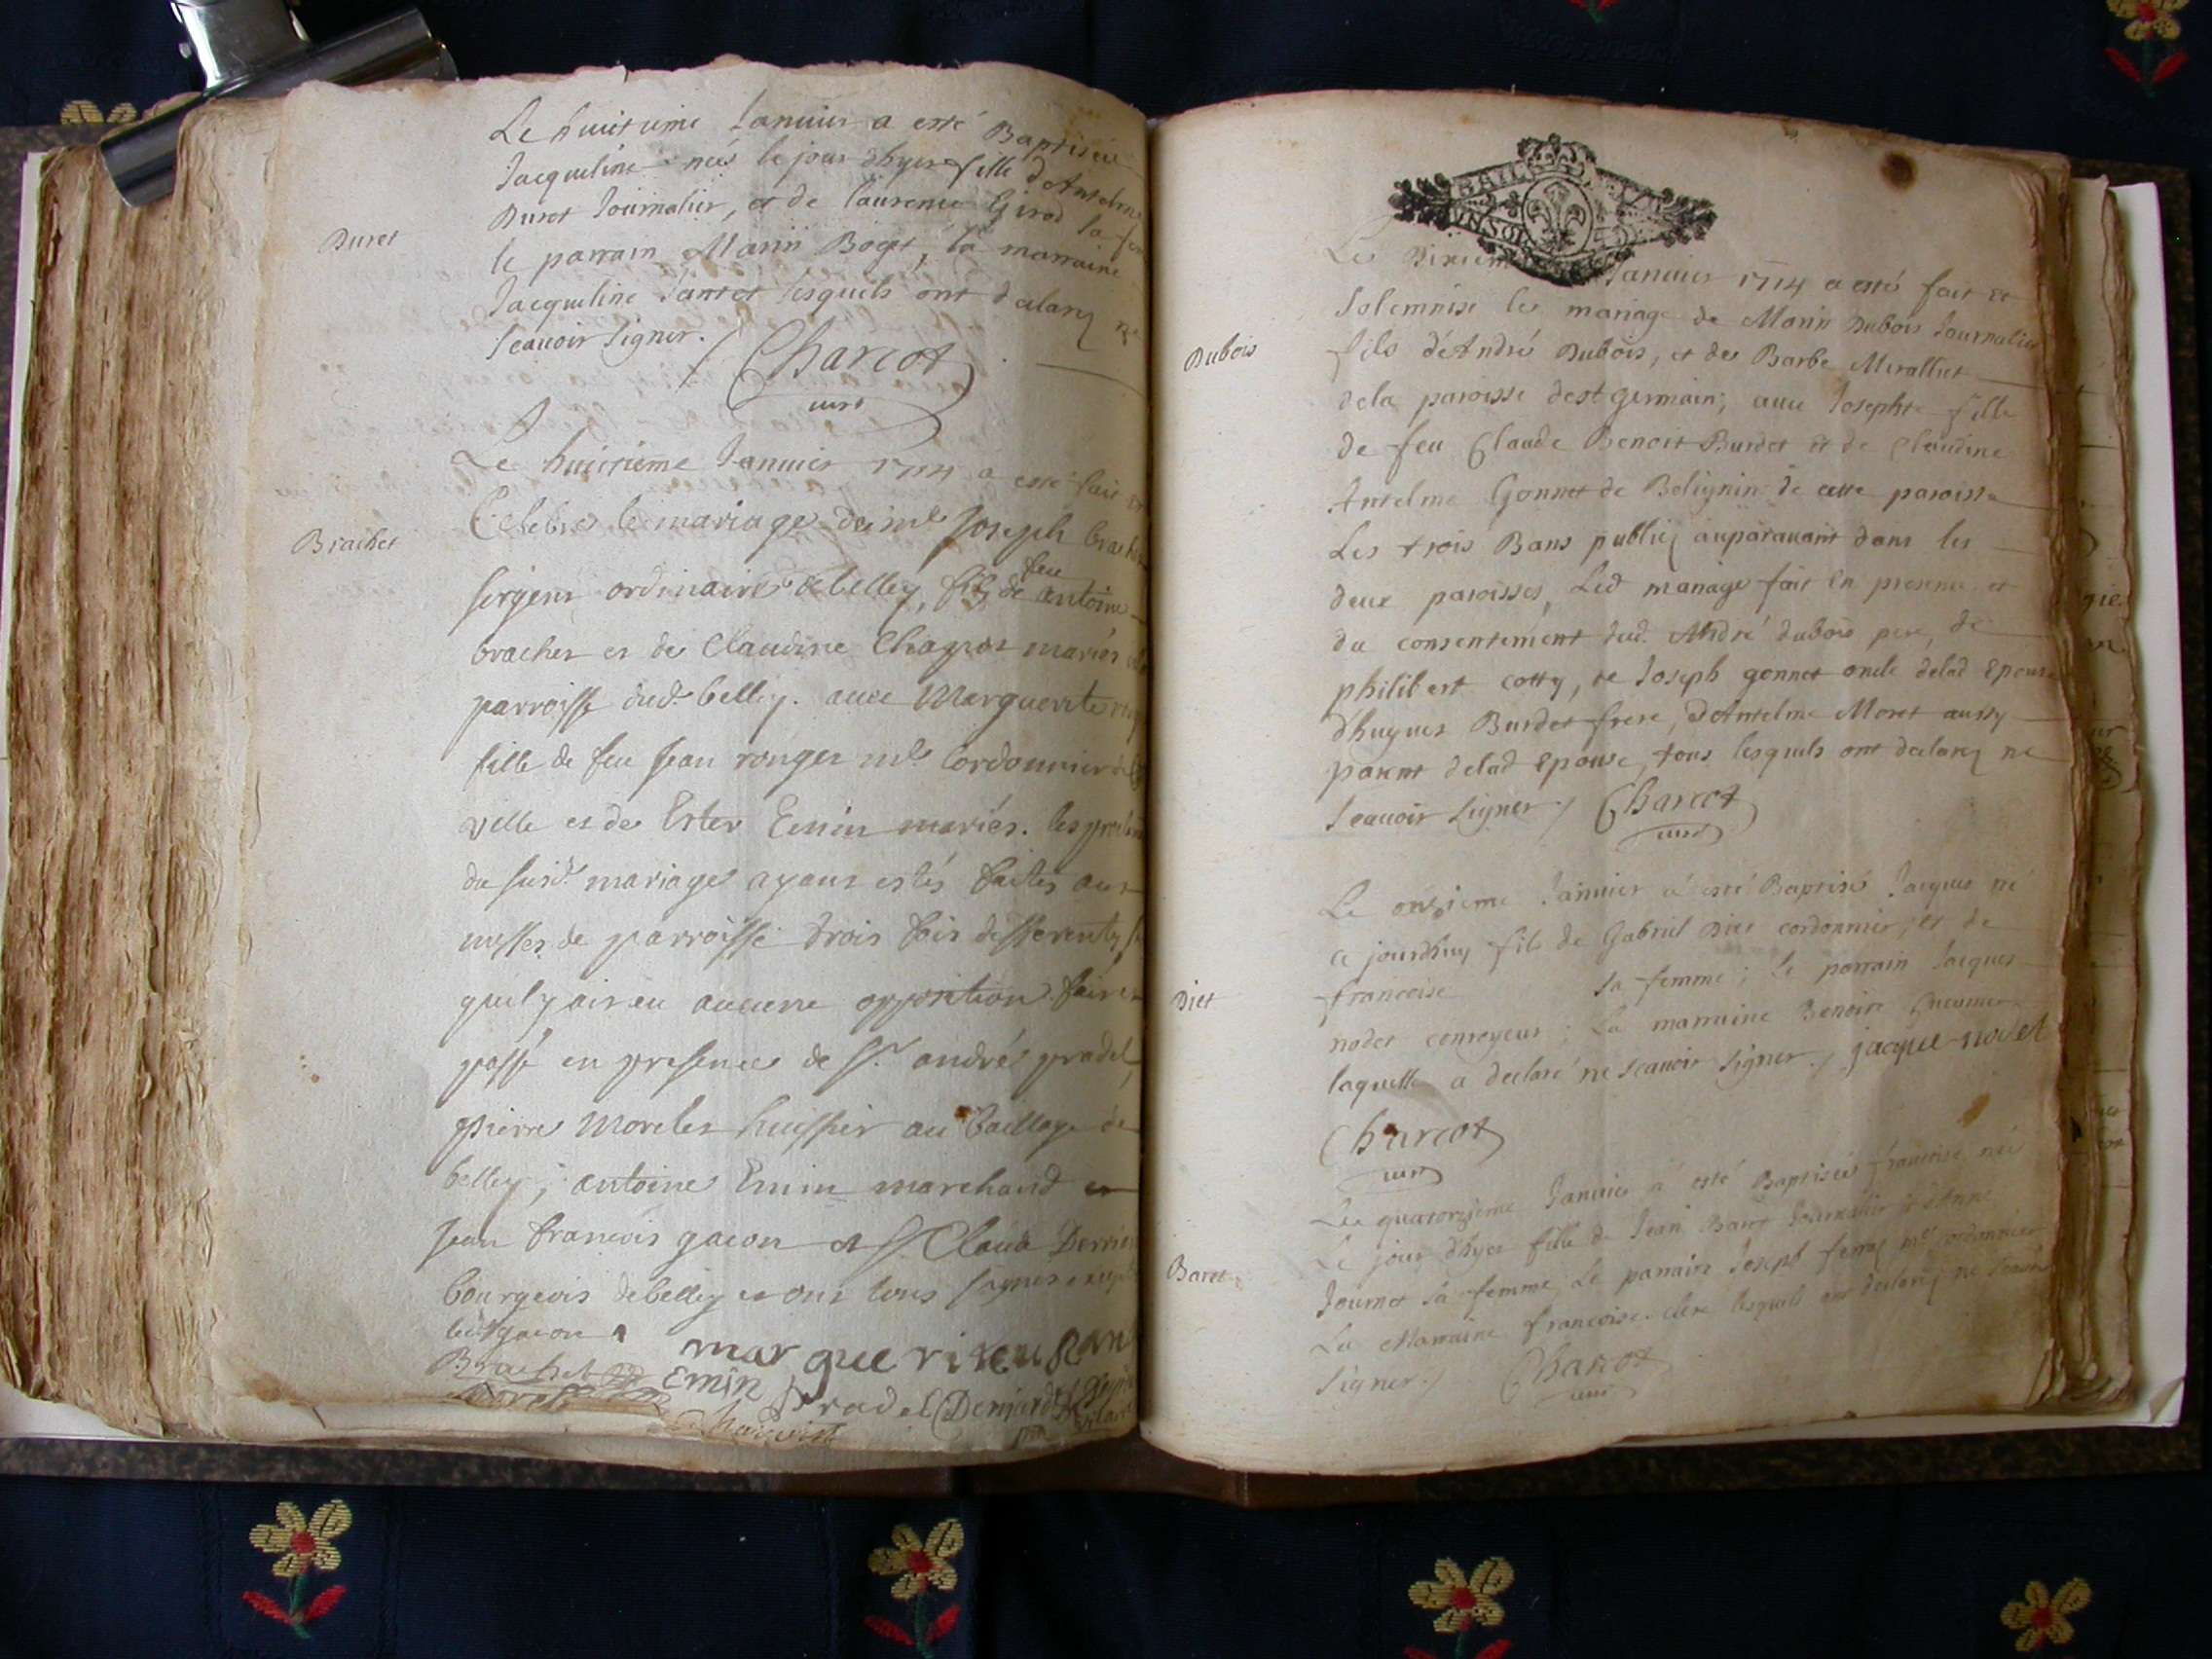 Le huictieme Janvier a esté Baptisée
Jacqueline neé le jour d'hyer fille d'Antelme
Duret Journalier, et de laurence Girod sa
Duret
le parrain Marin Boget, la marraine
Jacqueline Jantet lesquels ont declarez ne
scauoir signer. / Charcot
curé
Le huictieme Januier 1714 a esté fait et
Celebré le mariage de me Joseph brachet
Brachet
sergent ordinaire de belley, fils de feu antoine
brachet et de Claudine Chapot mariés
parroisse dud. belley. auec Marguerite
fille de feu Jean ronger me Cordonnier
ville et de Ester Emin mariés. les
du susd. mariage ayant estés faites aux
messes de parroisse trois fois differentes
quil y ait eu aucune opposition fait et
passé en presence de Sr. andré pradel,
pierre Morelet huissier au bailliage de
belley; antoine Emin marchand et
Jean francois gacon et Sr Claude
bourgeois de belley et ont tous signes
led. gacon
Brachet Emin marguerite
pradel
Januier 1714 a esté fait et
Solemnisé le mariage de Marin Dubois Journalier
Dubois
fils d'André Dubois, et de Barbe Miralliet
dela paroisse de st germain; auec Josephte fille
de feu Claude Benoit Burdet et de Claudine
Antelme Gonnet de Belignin de cette paroisse
Les trois Bans publiez auparauant dans les
deux paroisses, Led mariage fait en presence et
du consentement dud. André dubois pere, de
philibert cotty, de Joseph gonnet oncle delad Epouse
d'hugues Burdet frere, d'Antelme Moret aussy
parent delad Epouse, tous lesquels ont declarez ne
scauoir signer / Charcot
curé
Le onzieme Januier a esté Baptisé Jacques né
a jourdhuy fils de Gabriel Diet cordonnier, et de
Diet
francoise sa femme; le parrain Jacques
nodet conroyeur; La marraine Benoite
laquelle a declaré ne scauoir signer. / jaque nodet
Charcot
curé
Le quatorzieme Januier a esté Baptisée francoise neé
Le jour d'hyer fille de Jean Baret Journalier et d'Anne
Baret
Journet sa femme, Le parrain Joseph ferraz me cordonnier
La Marraine francoise lesquels ont declarez ne scauoir
signer. / Charcot
curé